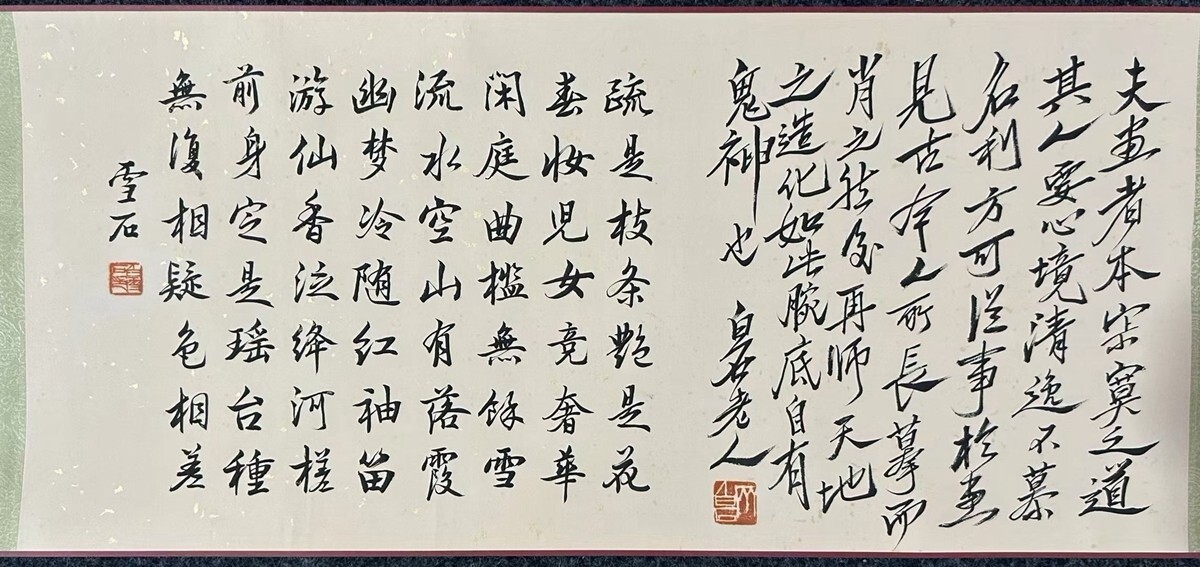 夫画者本寂寞之道
其人要心境清逸不慕
名利方可从事於画
見古今人所長摹而
肖之然后再師天地
之造化如此腕底自有
鬼神也 白石老人
疏是枝条艷是花
春妆児女竞奢華
闲庭曲槛無餘雪
流水空山有落霞
幽梦冷随红袖笛
游仙香泛绛河槎
前身定是瑶台種
無復相疑色相差
雪石